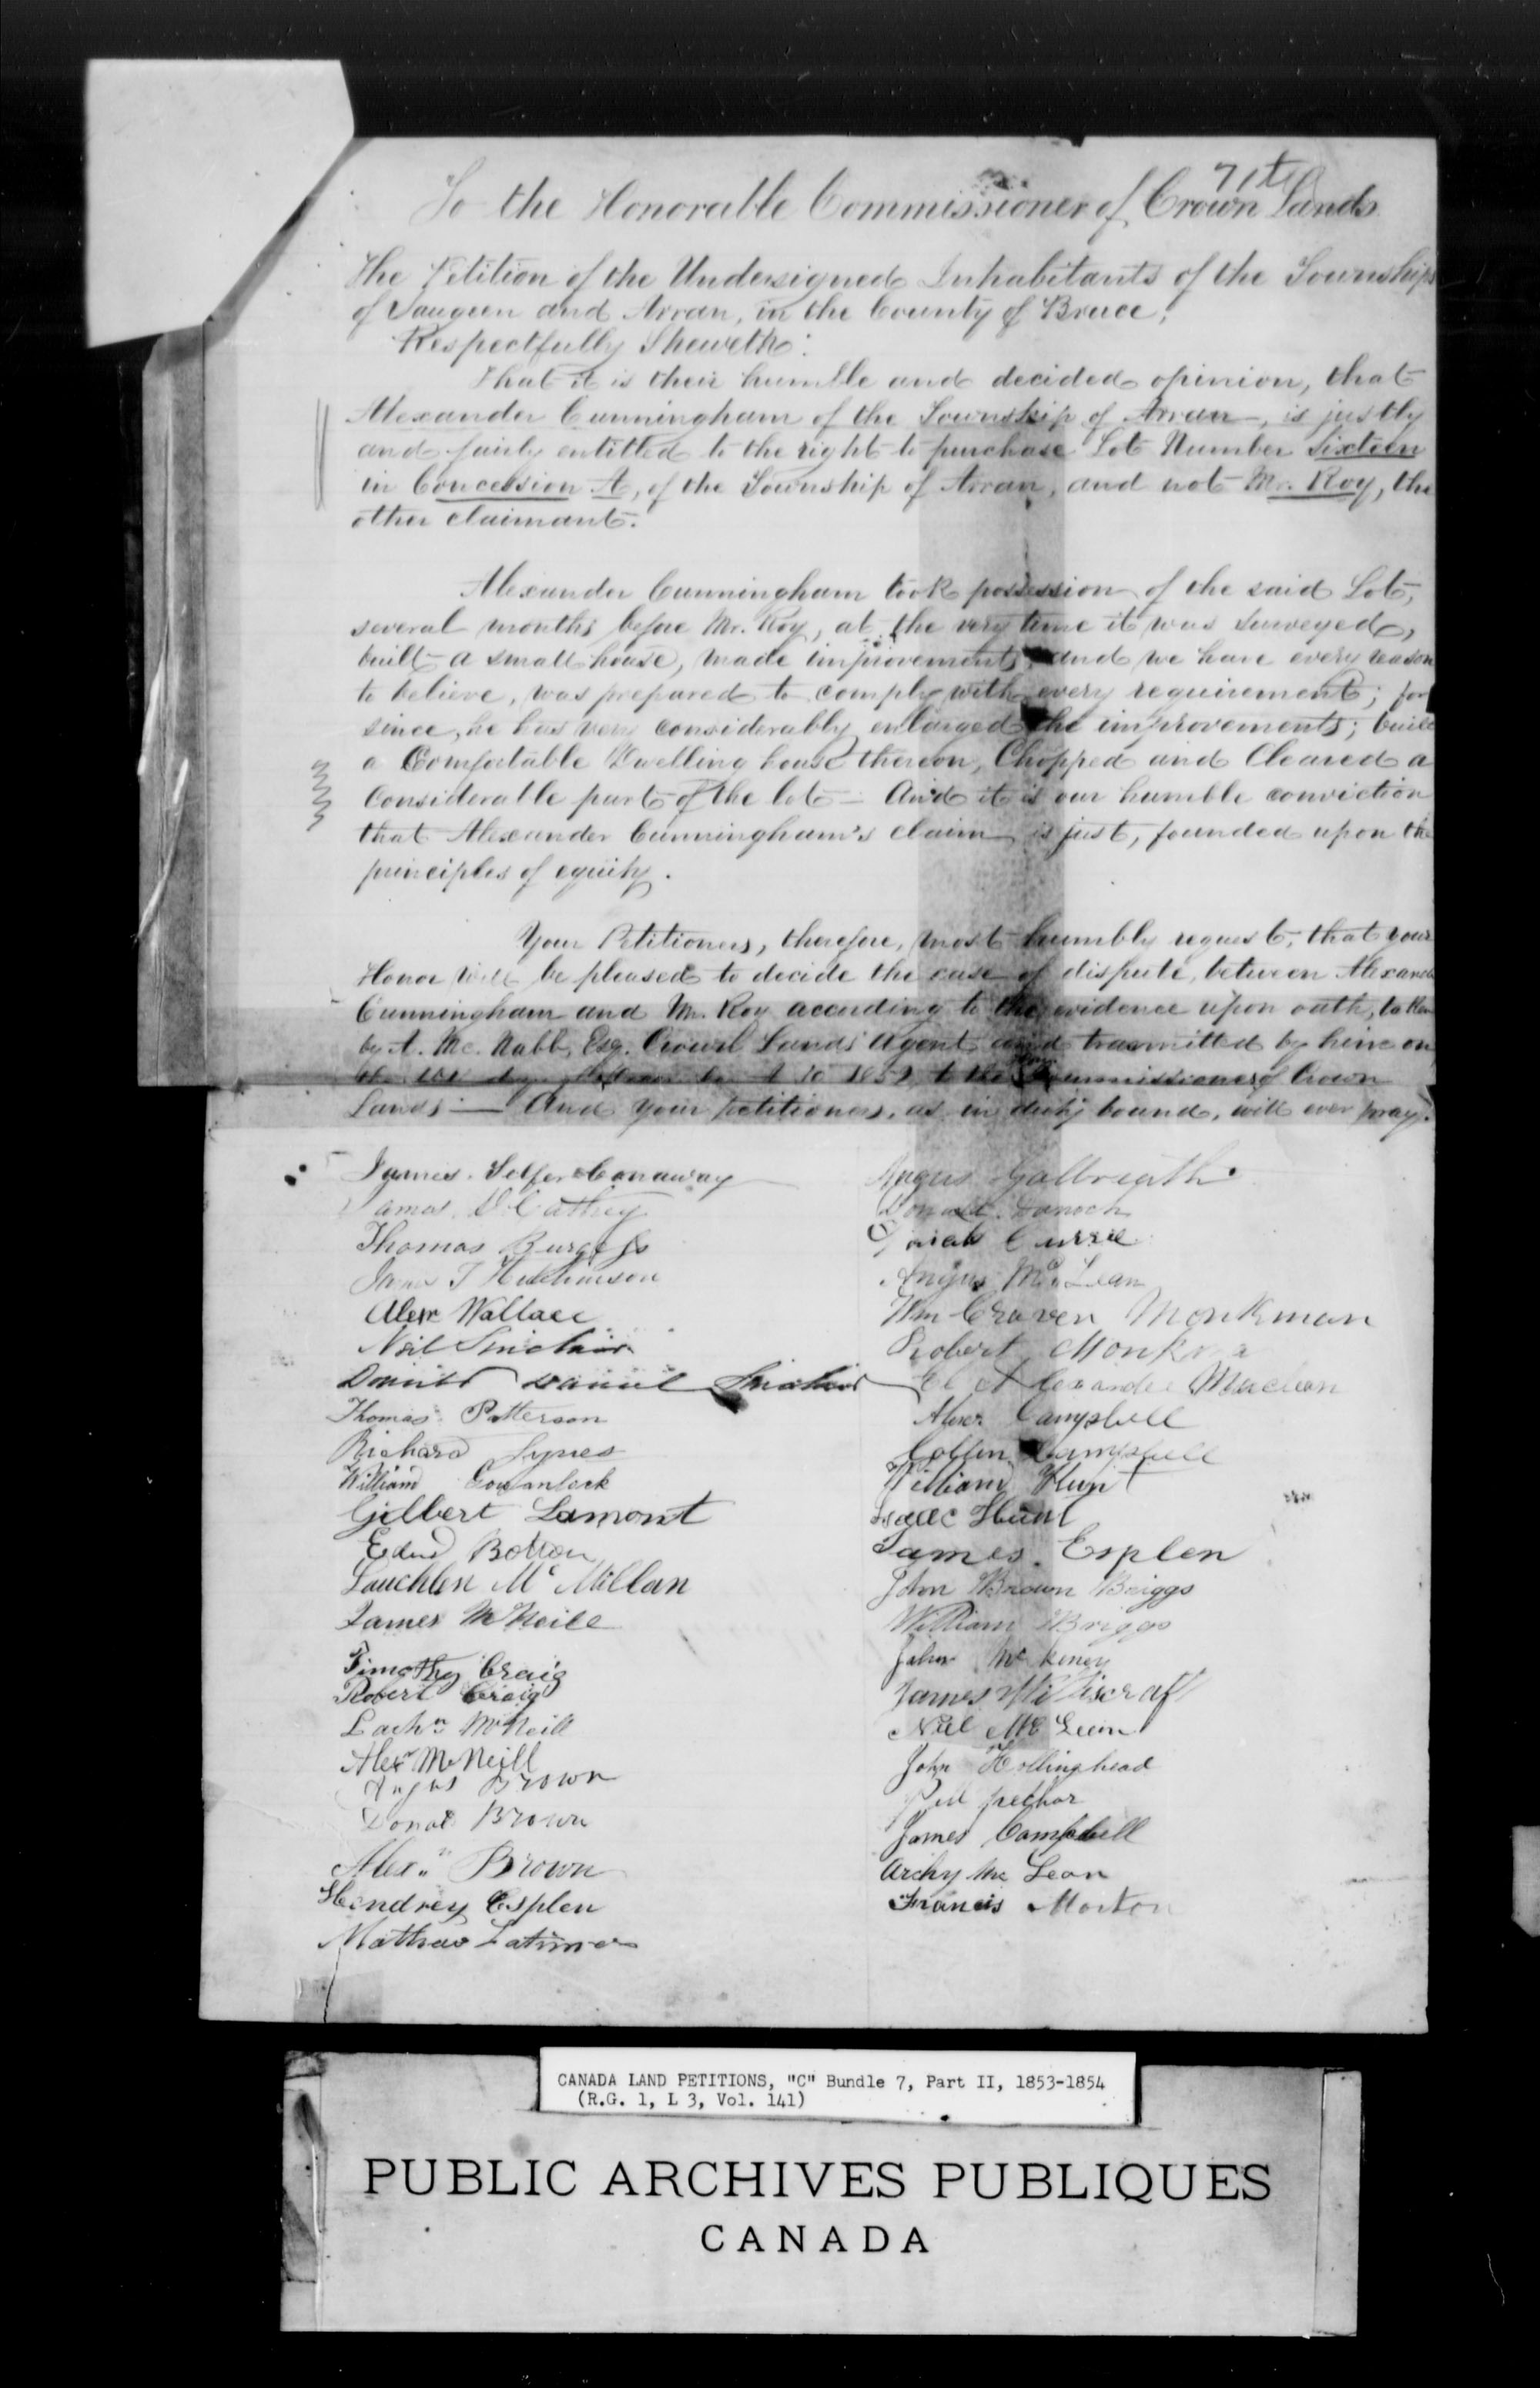 71t
To the Honorable Commissioner of Crown Lands
The Petition of the Undersigned Inhabitants of the Townships
of Saugeen and Arran, in the County of Bruce;
Respectfully Sheweth:
That it is their humble and decided opinion, that
Alexander Cunningham of the Township of Arran, is justly
and fairly entitled to the right to purchase Lot Number Sixteen
in Concession A, of the Township of Arran, and not Mr. Roy, the
other claimant.
Alexander Cunningham took possession of the said Lot,
several months before Mr. Roy, at the very time it was surveyed,
built a small house, made improvements, and we have every reason
to believe, was prepared to comply with every requirement; for
since, he has very considerably enlarged the improvements; built
a Comfortable Dwelling house thereon, Chopped and Cleared a
Considerable part of the lot — And it is our humble conviction
that Alexander Cunningham's claim is just, founded upon the
principles of equity.
Your Petitioners, therefore, most humbly request, that your
Honor will be pleased to decide the case of dispute, between Alexander
Cunningham and Mr. Roy according to the evidence upon oath, taken
by A. Mc. Nabb, Esq. Crown Lands Agent and transmitted by him on
the 1852 to the Commissioner of Crown
Lands — And your petitioners, as in duty bound, will ever pray.
James Conaway
Angus Galbreath
James
Donald
Thomas Burgess
Currie
James T Hutchinson
Angus McLean
Alexr Wallace
Wm Craven Monkman
Neil Sinclair
Robert
Daniel Sinclair
Alexander Maclean
Thomas Patterson
Alexr Campbell
Richard Synes
Campbell
William Gowanlock
William Hunt
Gilbert Lamont
Isaac Hunt
Edwd Bolton
James Esplen
Lauchlen McMillan
John Brown Briggs
James McNeill
William Briggs
Timothy Craig
John Mc
Robert Craig
James
Lachn McNeill
Neil McLean
Alexr McNeill
John Hollinghead
Angus Brown
Donald Brown
James Campbell
Alexr Brown
Archy Mc Lean
Hendrey Esplen
Francis Morton
Mathew Latimer
CANADA LAND PETITIONS, "C" Bundle 7, Part II, 1853-1854
(R.G. 1, L 3, Vol. 141)
PUBLIC ARCHIVES PUBLIQUES
CANADA